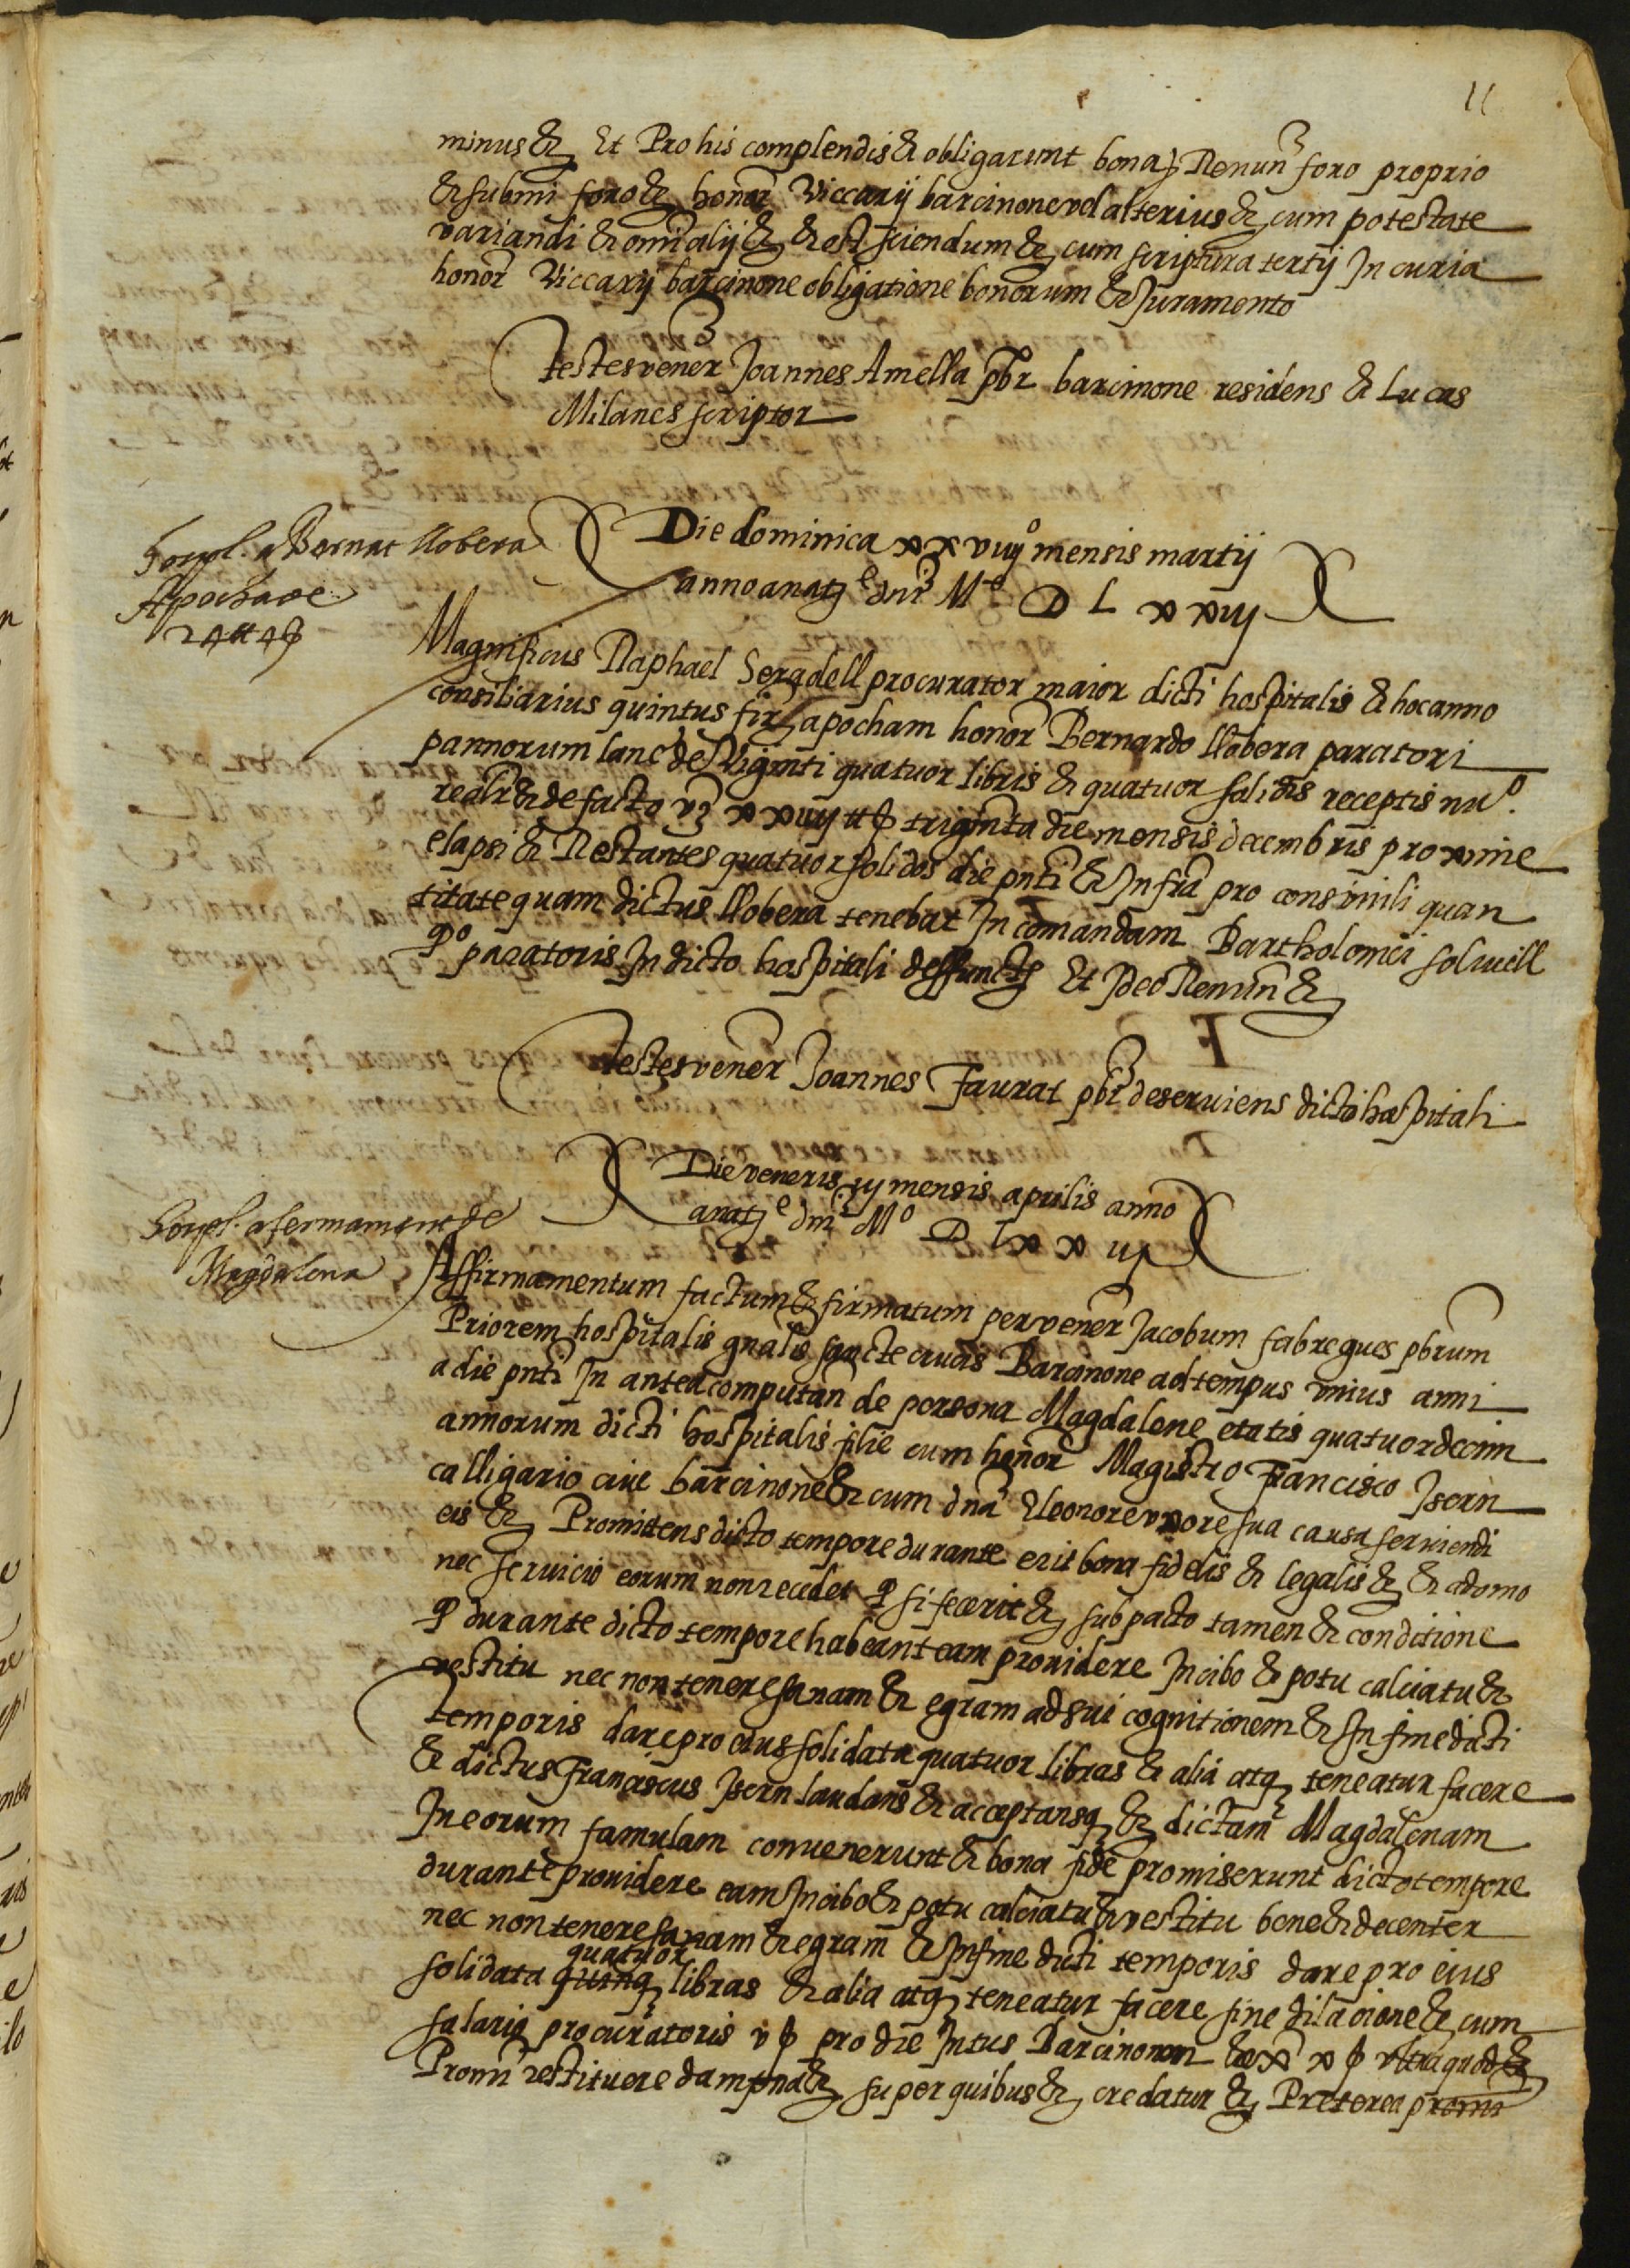 11
minus &c Et Pro his complendis & obligarunt bona Renunt foro proprio
& submi foro &c honor Viccarij barcinone vel alterius &c cum potestate
variandi & omi alij &c & est sciendum &c cum scriptura tertij In curia
honor Viccarij barcinone obligatione bonorum & Juramento
Testes vener Joannes Amella pbr barcinone residens & Lucas
Milanes scriptor
Die dominica xxviijº mensis martij
anno a natte dni Mº D L xxiij
Hospl. a Bernat llobera
Apocha de
24 ll 4 s
Magnificus Raphael Sergdell procurator maior dicti hospitalis & hoc anno
consiliarius quintus fir apocham honor Bernardo llobera paratori
pannorum lane de Viginti quatuor libris & quatuor solidis receptis nuº.
realr & de facto vz xxiiij ll s triginta die mensis decembris proxime
elapsi & Restantes quatuor solidos die pnti & Infra pro consimili quan
titate quam dictus llobera tenebat In comandam Bartholomei soluiell
qº paratoris In dicto hospitali deffuncti Et Ideo Renun &c
Testes vener Joannes Faurat pbr deserviens dicto hospitali
Die veneris iij mensis aprilis anno
a natte dni Mº D Lxxiij
Hospl. afermament de
Magdalena
Affirmamentum factum & firmatum per vener Jacobum fabregues pbrum
Priorem hospitalis gnalis sancte crucis Barcinone ad tempus vnius anni
a die pnti In antea computan de persona Magdalene etatis quatuordecim
annorum dicti hospitalis filie cum honor Magistro Francisco Isern
calligario cive barcinone & cum dna Eleonore vxore sua causa serviendi
eis &c Promittens dicto tempore durante erit bona fidelis & legalis &c & a domo
nec servicio eorum non recedet q si fecerit &c sub pacto tamen & conditione
q durante dicto tempore habeant eam providere In cibo & potu calciatu &
vestitu nec non tenere sanam & egram ad sui cognitionem & In fine dicti
temporis dare pro eius solidata quatuor libras & alia atq teneatur facere
& dictus Franciscus Isern laudans & acceptansq &c dictam Magdalenam
In eorum famulam convenerunt & bona fide promiserunt dicto tempore
durante providere eam In cibo & potu calciatu & vestitu bene & decenter
nec non tenere sanam & egram & In fine dicti temporis dare pro eius
quatuor
solidata quinq libras & alia atq teneatur facere sine dilacione &c cum
salario procuratoris v s pro die Intus Barcinonam & ex x s vltra quod &c
Promi restituere dampna &c super quibus &c credatur &c Preterea promi